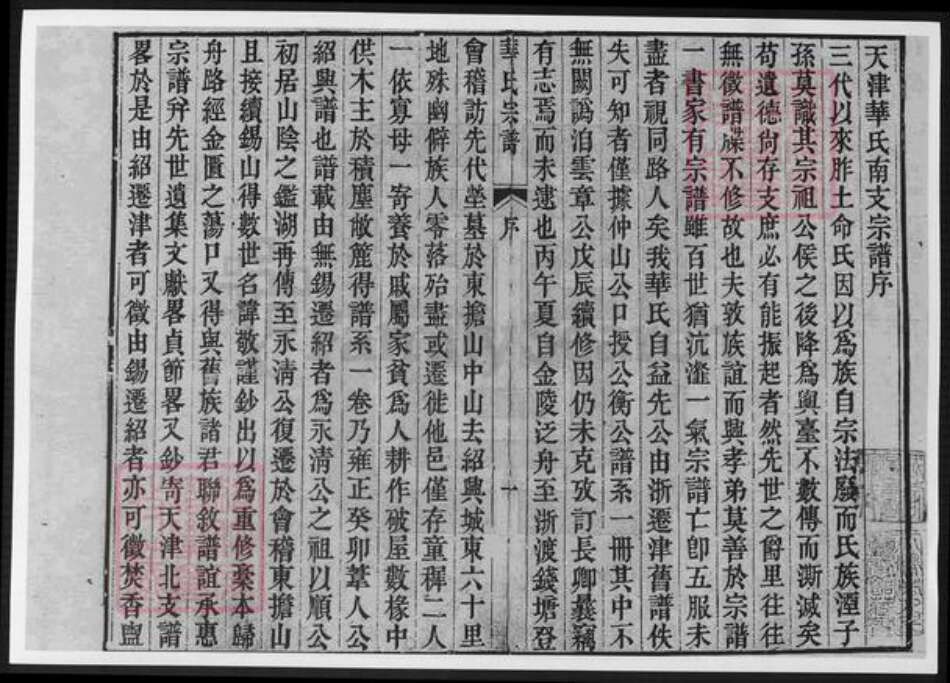 天津華氏南支宗譜序
三代以來胙土命氏因以為族自宗法廢而氏族湮子
孫莫識其宗祖公侯之後降為輿臺不數傳而澌滅矣
苟遺德尙存支庶必有能振起者然先世之爵里往往
無徵譜牒不修故也夫敦族誼而興孝弟莫善於宗譜
一書家有宗譜雖百世猶沆瀣一氣宗譜亡卽五服未
盡者視同路人矣我華氏自益先公由浙遷津舊譜佚
失可知者僅據仲山公口授公衡公譜系一冊其中不
無闕譌泊雲章公戊辰續修因仍未克攷訂長卿曩竊
有志焉而未逮也丙午夏自金陵泛舟至浙渡錢塘登
華氏宗譜 序 一
會稽訪先代塋墓於東擔山中山去紹興城東六十里
地殊幽僻族人零落殆盡或遷徙他邑僅存童穉二人
一依寡母一寄養於戚屬家貧為人耕作破屋數椽中
供木主於積塵敝簏得譜系一卷乃雍正癸卯葦人公
紹興譜也譜載由無錫遷紹者為永淸公之祖以順公
初居山陰之鑑湖再傳至永淸公復遷於會稽東擔山
且接續錫山得數世名諱敬謹鈔出以為重修藁本歸
舟路經金匱之蕩口又得與舊族諸君聯敘譜誼承惠
宗譜幷先世遺集文獻畧貞節畧又鈔寄天津北支譜
畧於是由紹遷津者可徵由錫遷紹者亦可徵焚香盥